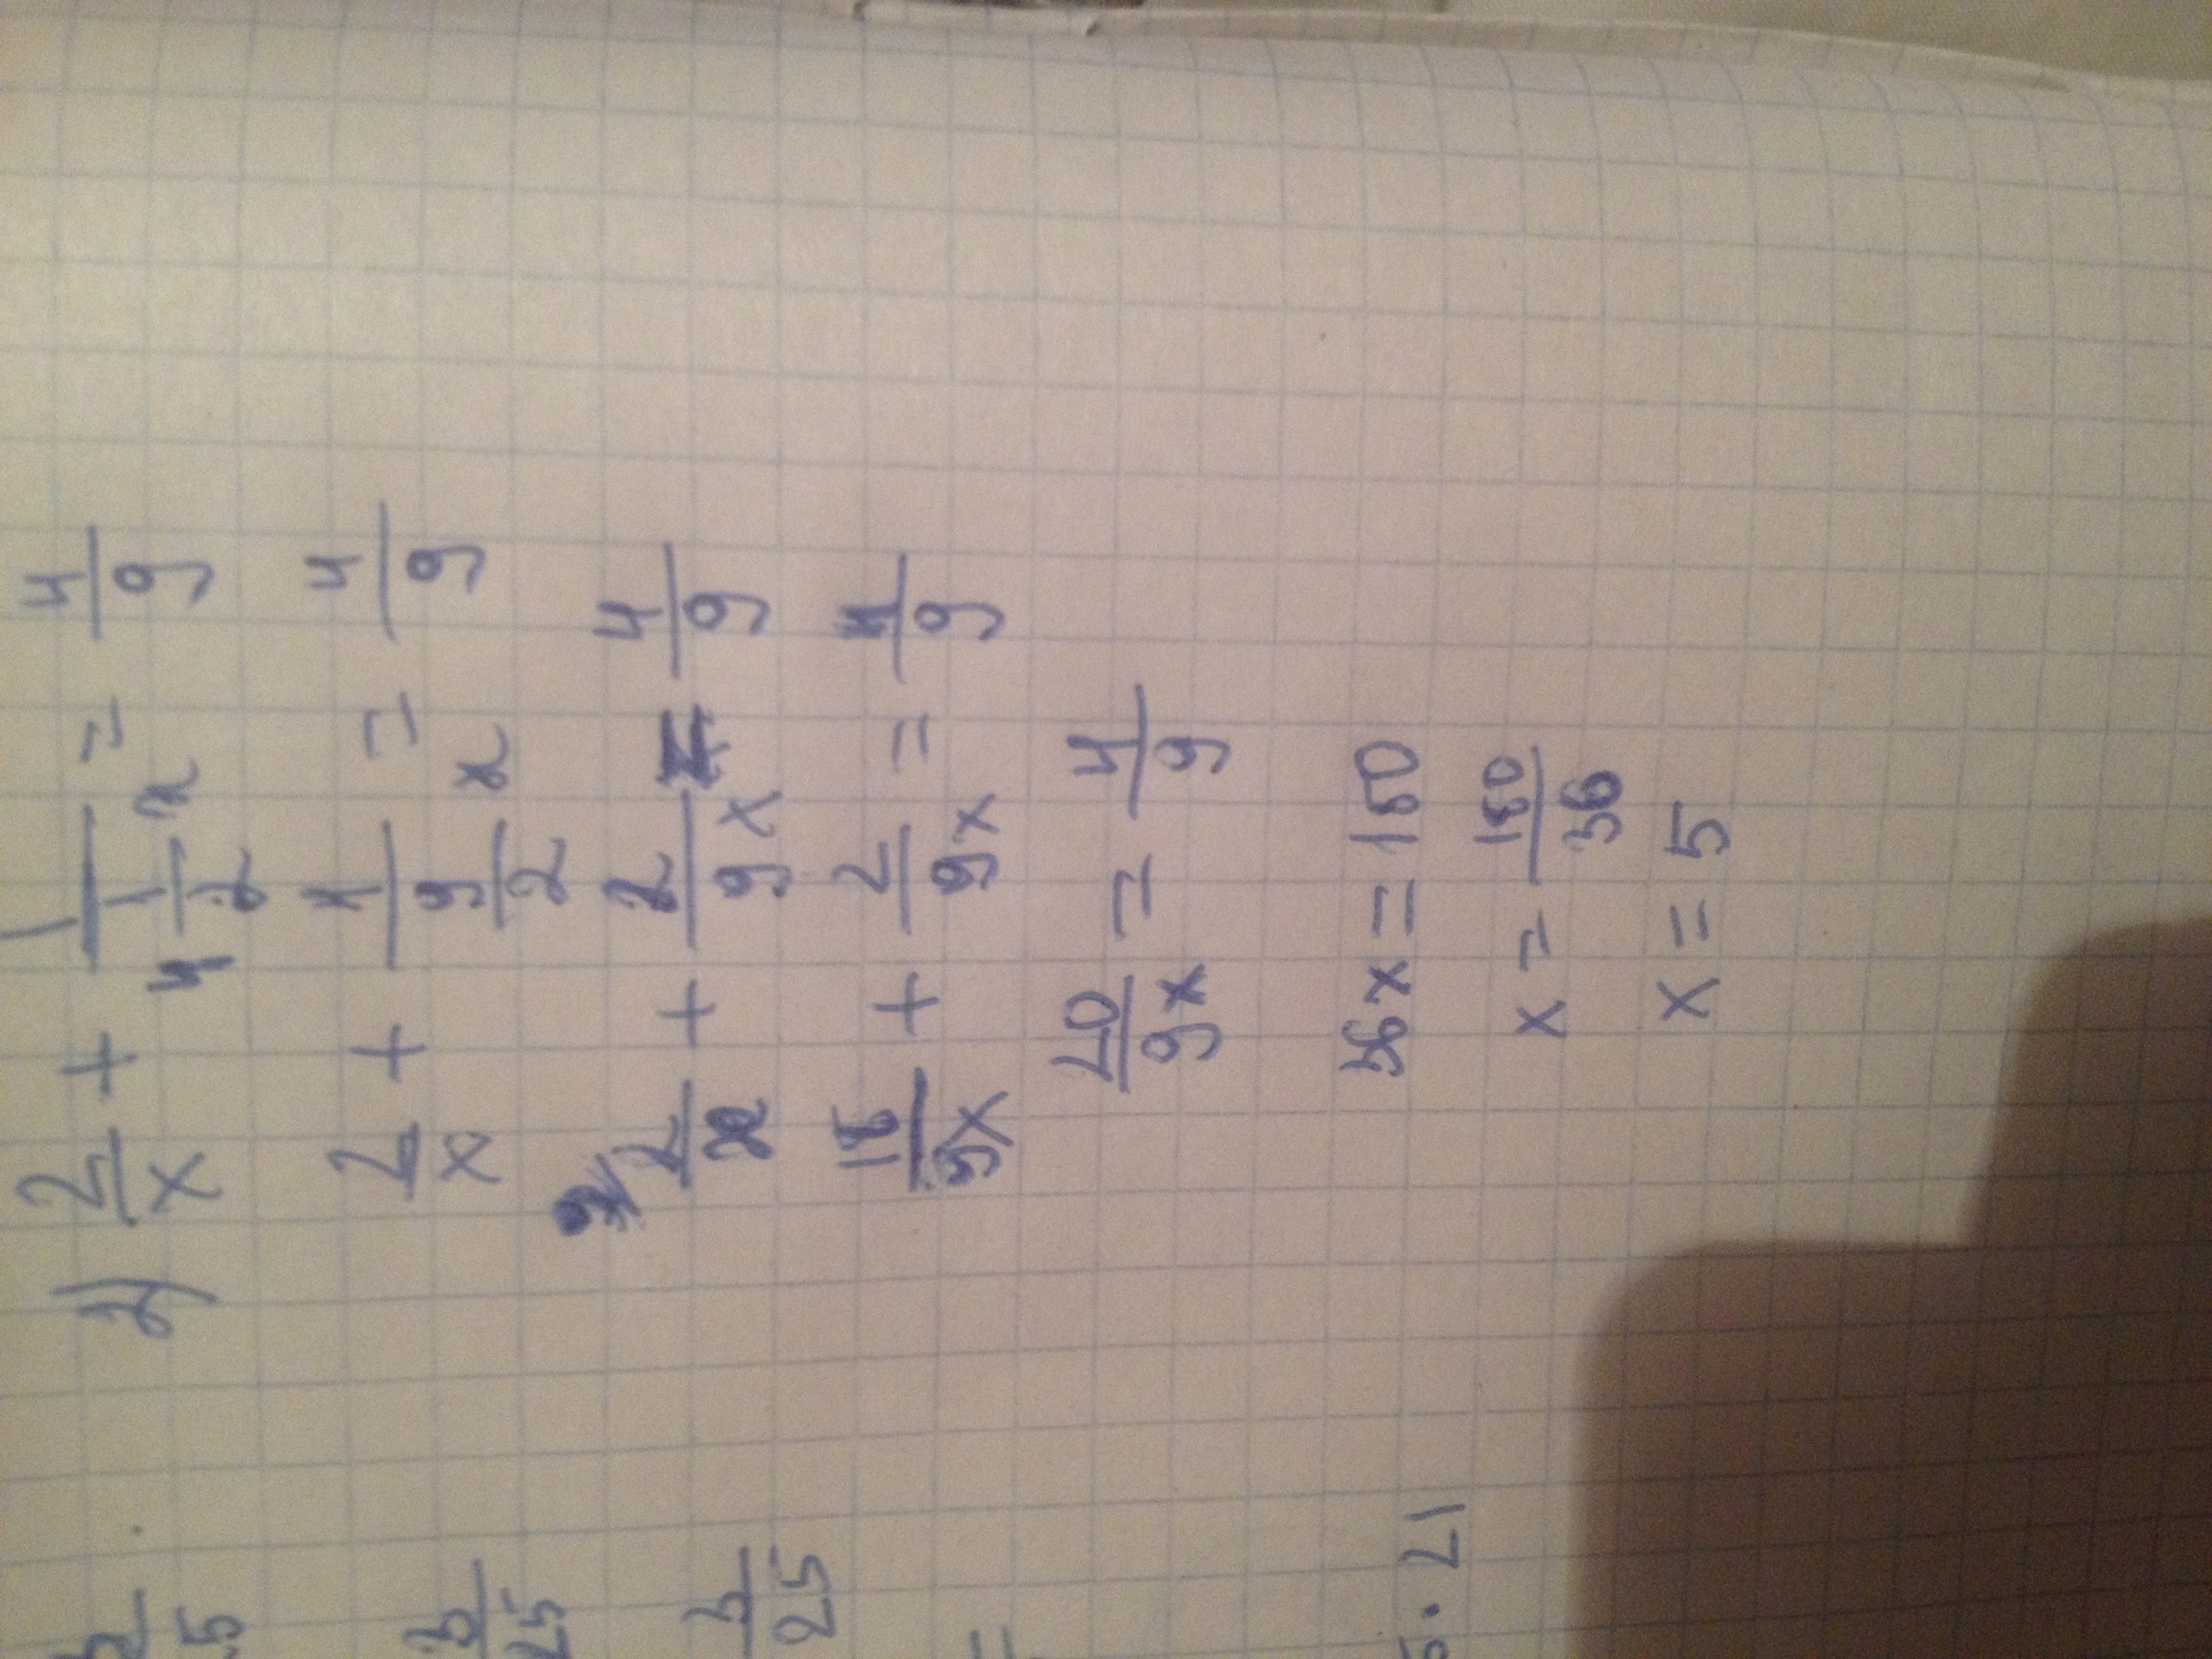 2) 2/x + 1/(4 1/2 x) = 4/9
2/x + 1/(9/2 x) = 4/9
9/ 2/x + 2/9x = 4/9
18/9x + 2/9x = 4/9
20/9x = 4/9
36x = 180
x = 180/36
x = 5
3/25
3/25
=
5 · 21